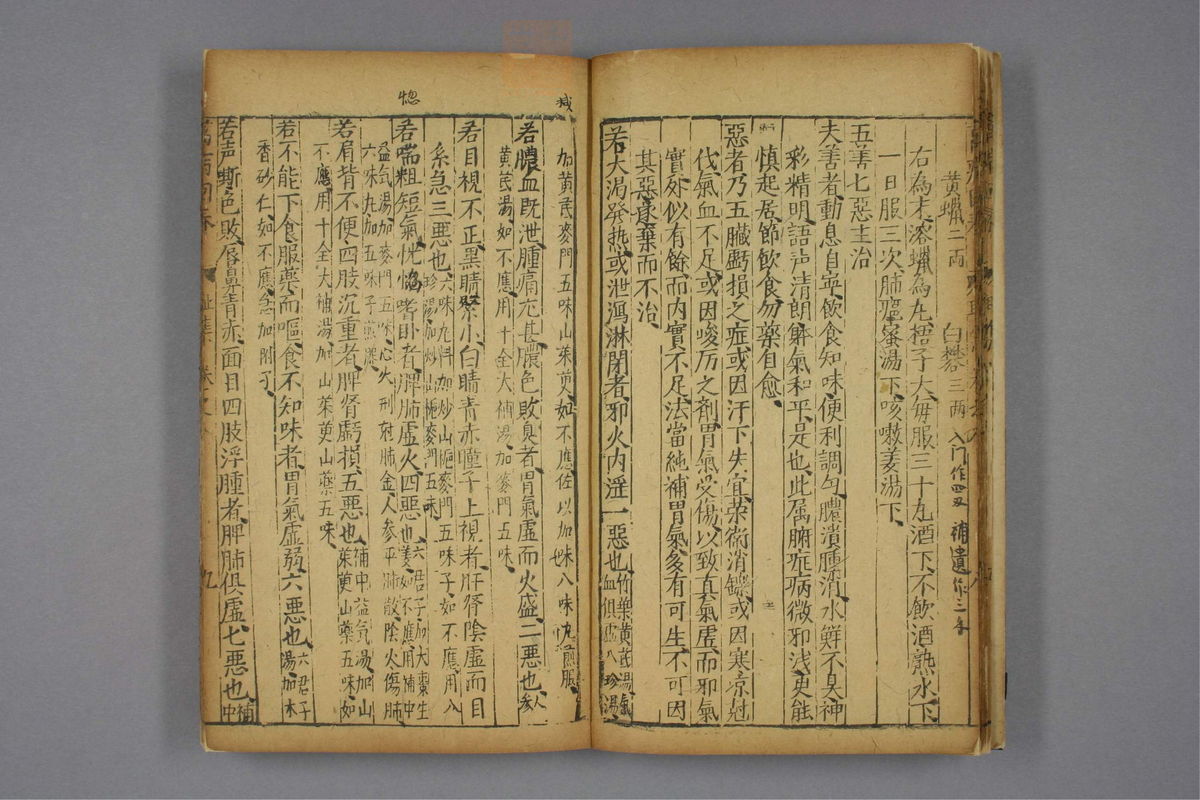 黃蠟二兩 白礬三兩 入门作四双 補遺作三手
右為末溶蠟為丸梧子大每服三十丸酒下不飲酒熟水下
一日服三次肺癰蜜湯下咳嗽姜湯下
五善七惡主治
夫善者動息自寧飲食知味便利調勻膿潰腫消水鮮不臭神
彩精明語声清朗躰氣和平是也此属腑症病微邪浅更能
慎起居節飲食勿藥自愈
惡者乃五臟虧損之症或因汗下失宜荣衛消鑠或因寒凉尅
伐氣血不足或因峻厉之剤胃氣受傷以致真氣虚而邪氣
實外似有餘而内實不足法當純補胃氣多有可生不可因
其惡遂棄而不治
若大渴発热或泄瀉淋閉者邪火内淫一惡也竹葉黄芪湯氣
血俱虚八珍湯
加黄芪麥門五味山茱萸如不應佐以加味八味丸煎服
若膿血既泄腫痛尤甚膿色敗臭者胃氣虚而火盛二惡也人參
黄芪湯如不應用十全大補湯加麥門五味
若目視不正黑睛緊小白睛青赤瞳子上視者肝腎陰虚而目
系急三惡也六味丸料加炒山梔麥門五味子如不應用八
珍湯加炒山梔麥門五味
若喘粗短氣恍惚嗜卧者脾肺虚火四惡也六君子加大棗生
姜如不應用補中
益氣湯加麥門五味心火刑尅肺金人参平肺散陰火傷肺
六味丸加五味子煎服
若肩背不便四肢沉重者脾腎虧損五惡也補中益氣湯加山
茱萸山藥五味如
不應用十全大補湯加山茱萸山藥五味
若不能下食服藥而嘔食不知味者胃氣虚弱六惡也六君子
湯加木
香砂仁如不應急加附子
若声嘶色敗唇鼻青赤面目四肢浮腫者脾肺俱虚七惡也補
中
減
惚